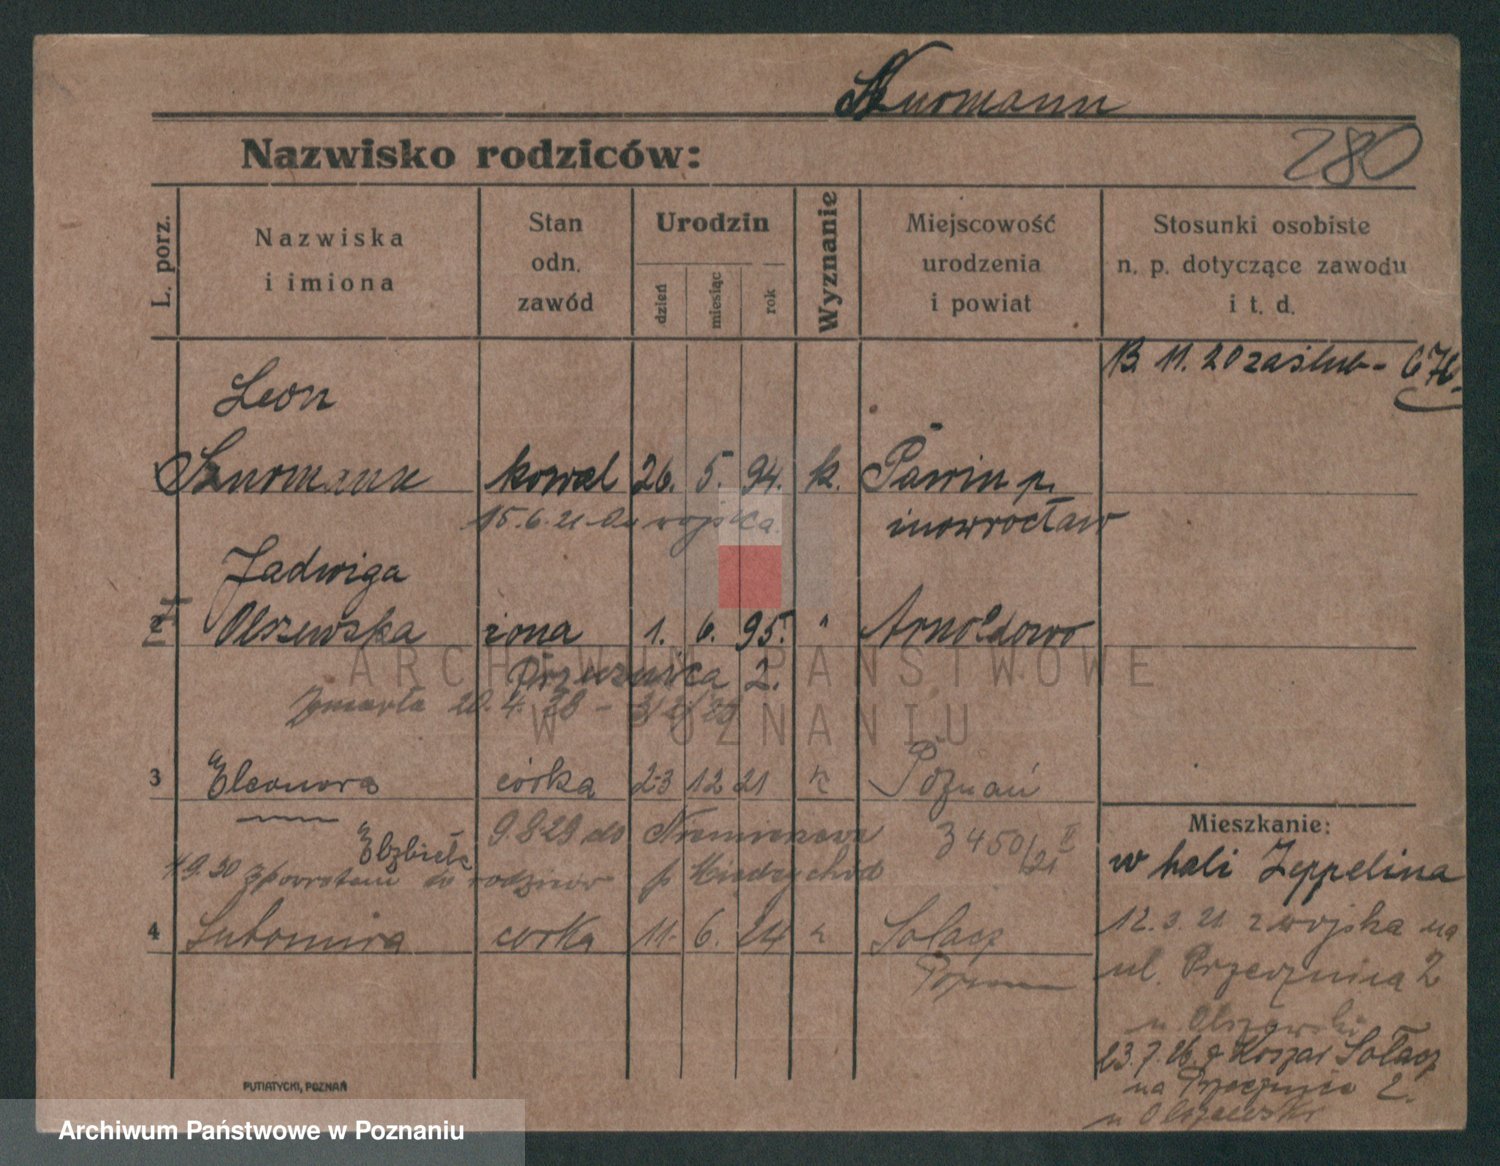 Szurmann
Nazwisko rodziców:
280
L. porz.
Nazwiska
i imiona
Stan
odn.
zawód
Urodzin
dzień
miesiąc
rok
Wyznanie
Miejscowość
urodzenia
i powiat
Stosunki osobiste
n. p. dotyczące zawodu
i t. d.
13. 11. 20 zaślub - 676
Leon
Szurmann kowal 26. 5. 94. k. Pawin p.
15.6.21 Du wojska. inowrocław
Jadwiga
2 Olszewska żona 1. 6. 95. " Arnoldowo
Przecznica 2.
Zmarła 20. 4. 28 -
3 Eleonora córka 23 12 21 k Poznań
Elżbieta
9 8 29 do
p Międzychód
3450/21 II
z powrotem do rodziców
4 Lubomira corka 11. 6. 24 k Sołacz
Poznan
Mieszkanie:
w hali Zeppelina
12.3.21. z wojska na
ul. Przecznica 2
u Olszewski
23.7.26. z Koszar Sołacz
na Przecznica 2.
u Olszewski
PUTIATYCKI, POZNAŃ
ARCHIWUM PAŃSTWOWE
W POZNANIU
Archiwum Państwowe w Poznaniu